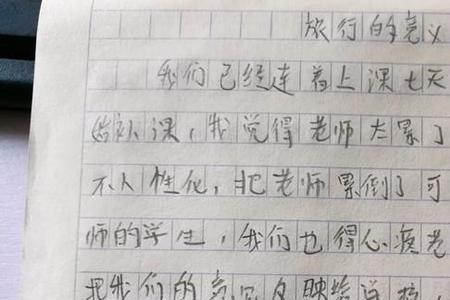 旅行的意义
我们已经连着上课七天
给补课，我觉得老师太累了
不人性化，把老师累倒了可
师的学生，我们也得心疼老
把我们的意见反映给学校，